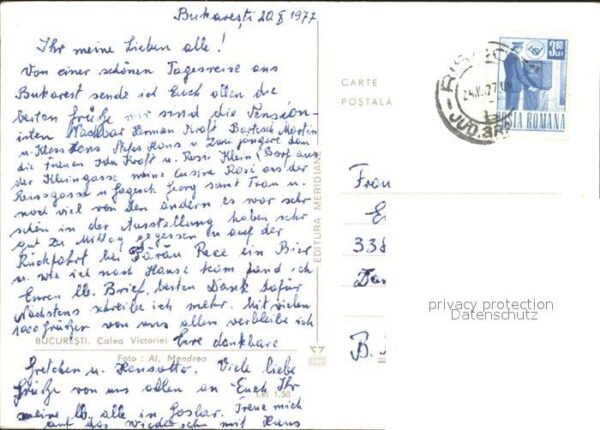 Bukarești 20 X 1977
Ihr meine Lieben alle!
Von einer schönen Tagesreise aus
Bukarest sende ich Euch allen die
besten Grüße wir sind die Pension-
isten Nachbar Herman Kraft Bartesch Martin
u Kless Hans Stefes Hans u Zwei jüngere dann
die Frauen Ida Kraft u. Rosi Klein (Borf aus
der Kleingasse meine Cusine Rosi aus der
Reussgasse u Georg samt Frau u.
noch viel von den andern es war sehr
schön in der Ausstellung haben sehr
gut Zu Mittag gegessen u auf der
Rückfahrt bei Părău Rece ein Bier
u. wie ich nach Hause kam fand ich
Euren lb. Brief, besten Dank dafür
Nächstens schreibe ich mehr. Mit vielen
1000 Grüßen von uns allen verbleibe ich
Eure dankbare
BUCUREȘTI. Calea Victoriei
Foto: Al. Mendrea
Gretchen u. Hansotto. Viele liebe
Grüße von uns allen an Euch Ihr
Lei 1,50
meine lb alle in Goslar. Freue mich
auf das wiedersehn mit Hans
EDITURA MERIDIANE
CARTE
POȘTALĂ
3,60
LEI
POSTA ROMANA
JUD. BR
Frau
338
B.
privacy protection
Datenschutz